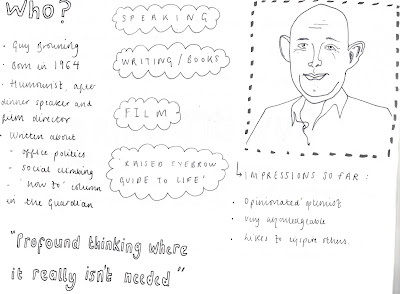 Who?
· Guy Browning
· Born in 1964
· Humourist, after
dinner speaker and
film director
· Written about
- office politics
- social climbing
- 'how to' column
in the Guardian
SPEAKING
WRITING/BOOKS
FILM
'RAISED EYEBROW
GUIDE TO LIFE'
IMPRESSIONS SO FAR:
· Opinionated optimist
· Very knowledgeable
· Likes to inspire others.
"Profound thinking where
it really isn't needed"